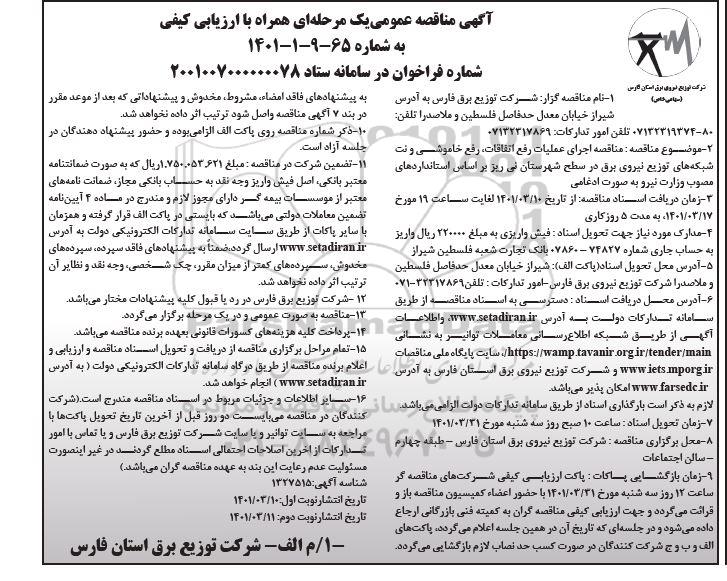 آگهی مناقصه عمومی‌یک مرحله‌ای همراه با ارزیابی کیفی
به شماره ۶۵-۹-۱-۱۴۰۱
شماره فراخوان در سامانه ستاد ۲۰۰۱۰۰۷۰۰۰۰۰۰۰۷۸
شرکت توزیع نیروی برق استان فارس
(سهامی خاص)
۱-نام مناقصه گزار: شرکت توزیع برق فارس به آدرس
شیراز خیابان معدل حدفاصل فلسطین و ملاصدرا تلفن:
۸۰-۰۷۱۳۲۳۱۹۳۷۴ تلفن امور تدارکات: ۰۷۱۳۲۳۱۷۸۶۹
۲-موضوع مناقصه : مناقصه اجرای عملیات رفع اتفاقات، رفع خاموشی و نت
شبکه‌های توزیع نیروی برق در سطح شهرستان نی ریز بر اساس استانداردهای
مصوب وزارت نیرو به صورت ادغامی
۳-زمان دریافت اسناد مناقصه: از تاریخ ۱۴۰۱/۰۳/۱۰ لغایت ساعت ۱۹ مورخ
۱۴۰۱/۰۳/۱۷، به مدت ۵ روزکاری
۴-مدارک مورد نیاز جهت تحویل اسناد : فیش واریزی به مبلغ ۲۲۰۰۰۰ ریال واریز
به حساب جاری شماره ۷۴۸۲۷ – ۰۷۸۶۰ بانک تجارت شعبه فلسطین شیراز
۵-آدرس محل تحویل اسناد(پاکت الف): شیراز خیابان معدل حدفاصل فلسطین
و ملاصدرا شرکت توزیع نیروی برق فارس-امور تدارکات : تلفن۳۲۳۱۷۸۶۹-۰۷۱
۶-آدرس محل دریافت اسناد : دسترسی به اسناد مناقصه از طریق
سامانه تدارکات دولت به آدرس www.setadiran.ir، واطلاعات
آگهی از طریق شبکه اطلاع‌رسانی معاملات توانیر به نشانی
https://wamp.tavanir.org.ir/tender/main)، سایت پایگاه ملی مناقصات
www.iets.mporg.ir و شرکت توزیع نیروی برق استان فارس به آدرس
www.farsedc.ir امکان پذیر می‌باشد.
لازم به ذکر است بارگذاری اسناد از طریق سامانه تدارکات دولت الزامی‌می‌باشد.
۷-زمان تحویل اسناد : ساعت ۱۰ صبح روز سه شنبه مورخ ۱۴۰۱/۰۳/۳۱
۸-محل برگزاری مناقصه : شرکت توزیع نیروی برق استان فارس – طبقه چهارم
– سالن اجتماعات
۹-زمان بازگشایی پاکات : پاکت ارزیابی کیفی شرکت‌های مناقصه گر
ساعت ۱۲ روز سه شنبه مورخ ۱۴۰۱/۰۳/۳۱ با حضور اعضاء کمیسیون مناقصه باز و
قرائت می‌گردد و جهت ارزیابی کیفی مناقصه گران به کمیته فنی بازرگانی ارجاع
داده می‌شود و در جلسه‌ای که تاریخ آن در همین جلسه اعلام می‌گردد، پاکت‌های
الف و ب و ج شرکت کنندگان در صورت کسب حد نصاب لازم بازگشایی می‌گردد.
به پیشنهادهای فاقد امضاء، مشروط، مخدوش و پیشنهاداتی که بعد از موعد مقرر
در بند ۷ آگهی مناقصه واصل شود ترتیب اثر داده نخواهد شد.
۱۰-ذکر شماره مناقصه روی پاکت الف الزامی‌بوده و حضور پیشنهاد دهندگان در
جلسه آزاد است.
۱۱-تضمین شرکت در مناقصه : مبلغ ۱.۷۵۰.۰۵۳.۶۲۱ریال که به صورت ضمانتنامه
معتبر بانکی، اصل فیش واریز وجه نقد به حساب بانکی مجاز، ضمانت نامه‌های
معتبر از موسسات بیمه گر دارای مجوز لازم و مندرج در ماده ۴ آیین‌نامه
تضمین معاملات دولتی می‌باشد که بایستی در پاکت الف قرار گرفته و همزمان
با سایر پاکات از طریق سایت سامانه تدارکات الکترونیکی دولت به آدرس
www.setadiran.ir ارسال گردد،ضمناً به پیشنهادهای فاقد سپرده، سپرده‌های
مخدوش، سپرده‌های کمتر از میزان مقرر، چک شخصی، وجه نقد و نظایر آن
ترتیب اثر داده نخواهد شد.
۱۲ -شرکت توزیع برق فارس در رد یا قبول کلیه پیشنهادات مختار می‌باشد.
۱۳-مناقصه به صورت عمومی و در یک مرحله برگزار می‌گردد.
۱۴-پرداخت کلیه هزینه‌های کسورات قانونی بعهده برنده مناقصه می‌باشد.
۱۵-تمام مراحل برگزاری مناقصه از دریافت و تحویل اسناد مناقصه و ارزیابی و
اعلام برنده مناقصه از طریق درگاه سامانه تدارکات الکترونیکی دولت ( به آدرس
www.setadiran.ir ) انجام خواهد شد.
۱۶-سایر اطلاعات و جزئیات مربوط در اسناد مناقصه مندرج است.(شرکت
کنندگان در مناقصه می‌بایست دو روز قبل از آخرین تاریخ تحویل پاکت‌ها با
مراجعه به سایت توانیر و یا سایت شرکت توزیع برق فارس و یا تماس با امور
تدارکات از اخرین اصلاحات احتمالی اسناد مطلع گردند در غیر اینصورت
مسئولیت عدم رعایت این بند به عهده مناقصه گران می‌باشد.)
شناسه آگهی:۱۳۲۷۵۱۵
تاریخ انتشارنوبت اول:۱۴۰۱/۰۳/۱۰
تاریخ انتشارنوبت دوم: ۱۴۰۱/۰۳/۱۱
۱/- م الف- شرکت توزیع برق استان فارس